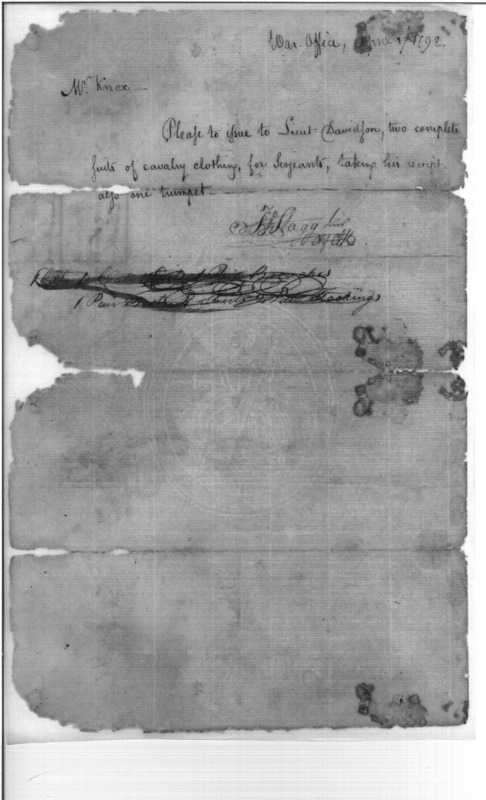 War Office, 1792.
Mr. Knox —
Please to issue to Lieut. Davidson, two complete
suits of cavalry clothing, for Serjeants, taking his receipt.
also one trumpet —
Stagg Jun
1 Pair Stockings